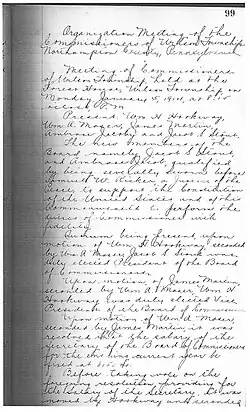 99
Organization Meeting of the
Commissioners of Wilson Township
Northampton County, Pennsylvania
Meeting of Commissioners
of Wilson Township held at the
House, Wilson Township on
Monday January 5, 1914, at 8:15
o'clock P.M.
Present Wm H. Hookway,
Wm A. Moyer, James Martin,
Ambrose Jacoby and Jacob S. Stout.
The new members of the
Board, namely Jacob S. Stout,
and Ambrose Jacoby, qualified
by being severally sworn before
Peace to support the Constitution
of the United States and of this
Commonwealth & perform the
duties of Commissioner with
fidelity.
A quorum being present, upon
motion of Wm H. Hookway, seconded
by Wm A. Moyer, Jacob S. Stout was
duly elected President of the Board
of Commissioners.
Upon motion of James Martin,
seconded by Wm A. Moyer, Wm H.
Hookway was duly elected Vice
President of the Board of Commissioners
Upon motion of Wm A. Moyer,
seconded by James Martin, it was
resolved that the salary of the
Secretary of the Board of Commissioners
for the ensuing current year be
fixed at
Before taking vote on the
foregoing resolution providing for
the salary of the Secretary, it was
moved by Hookway and seconded